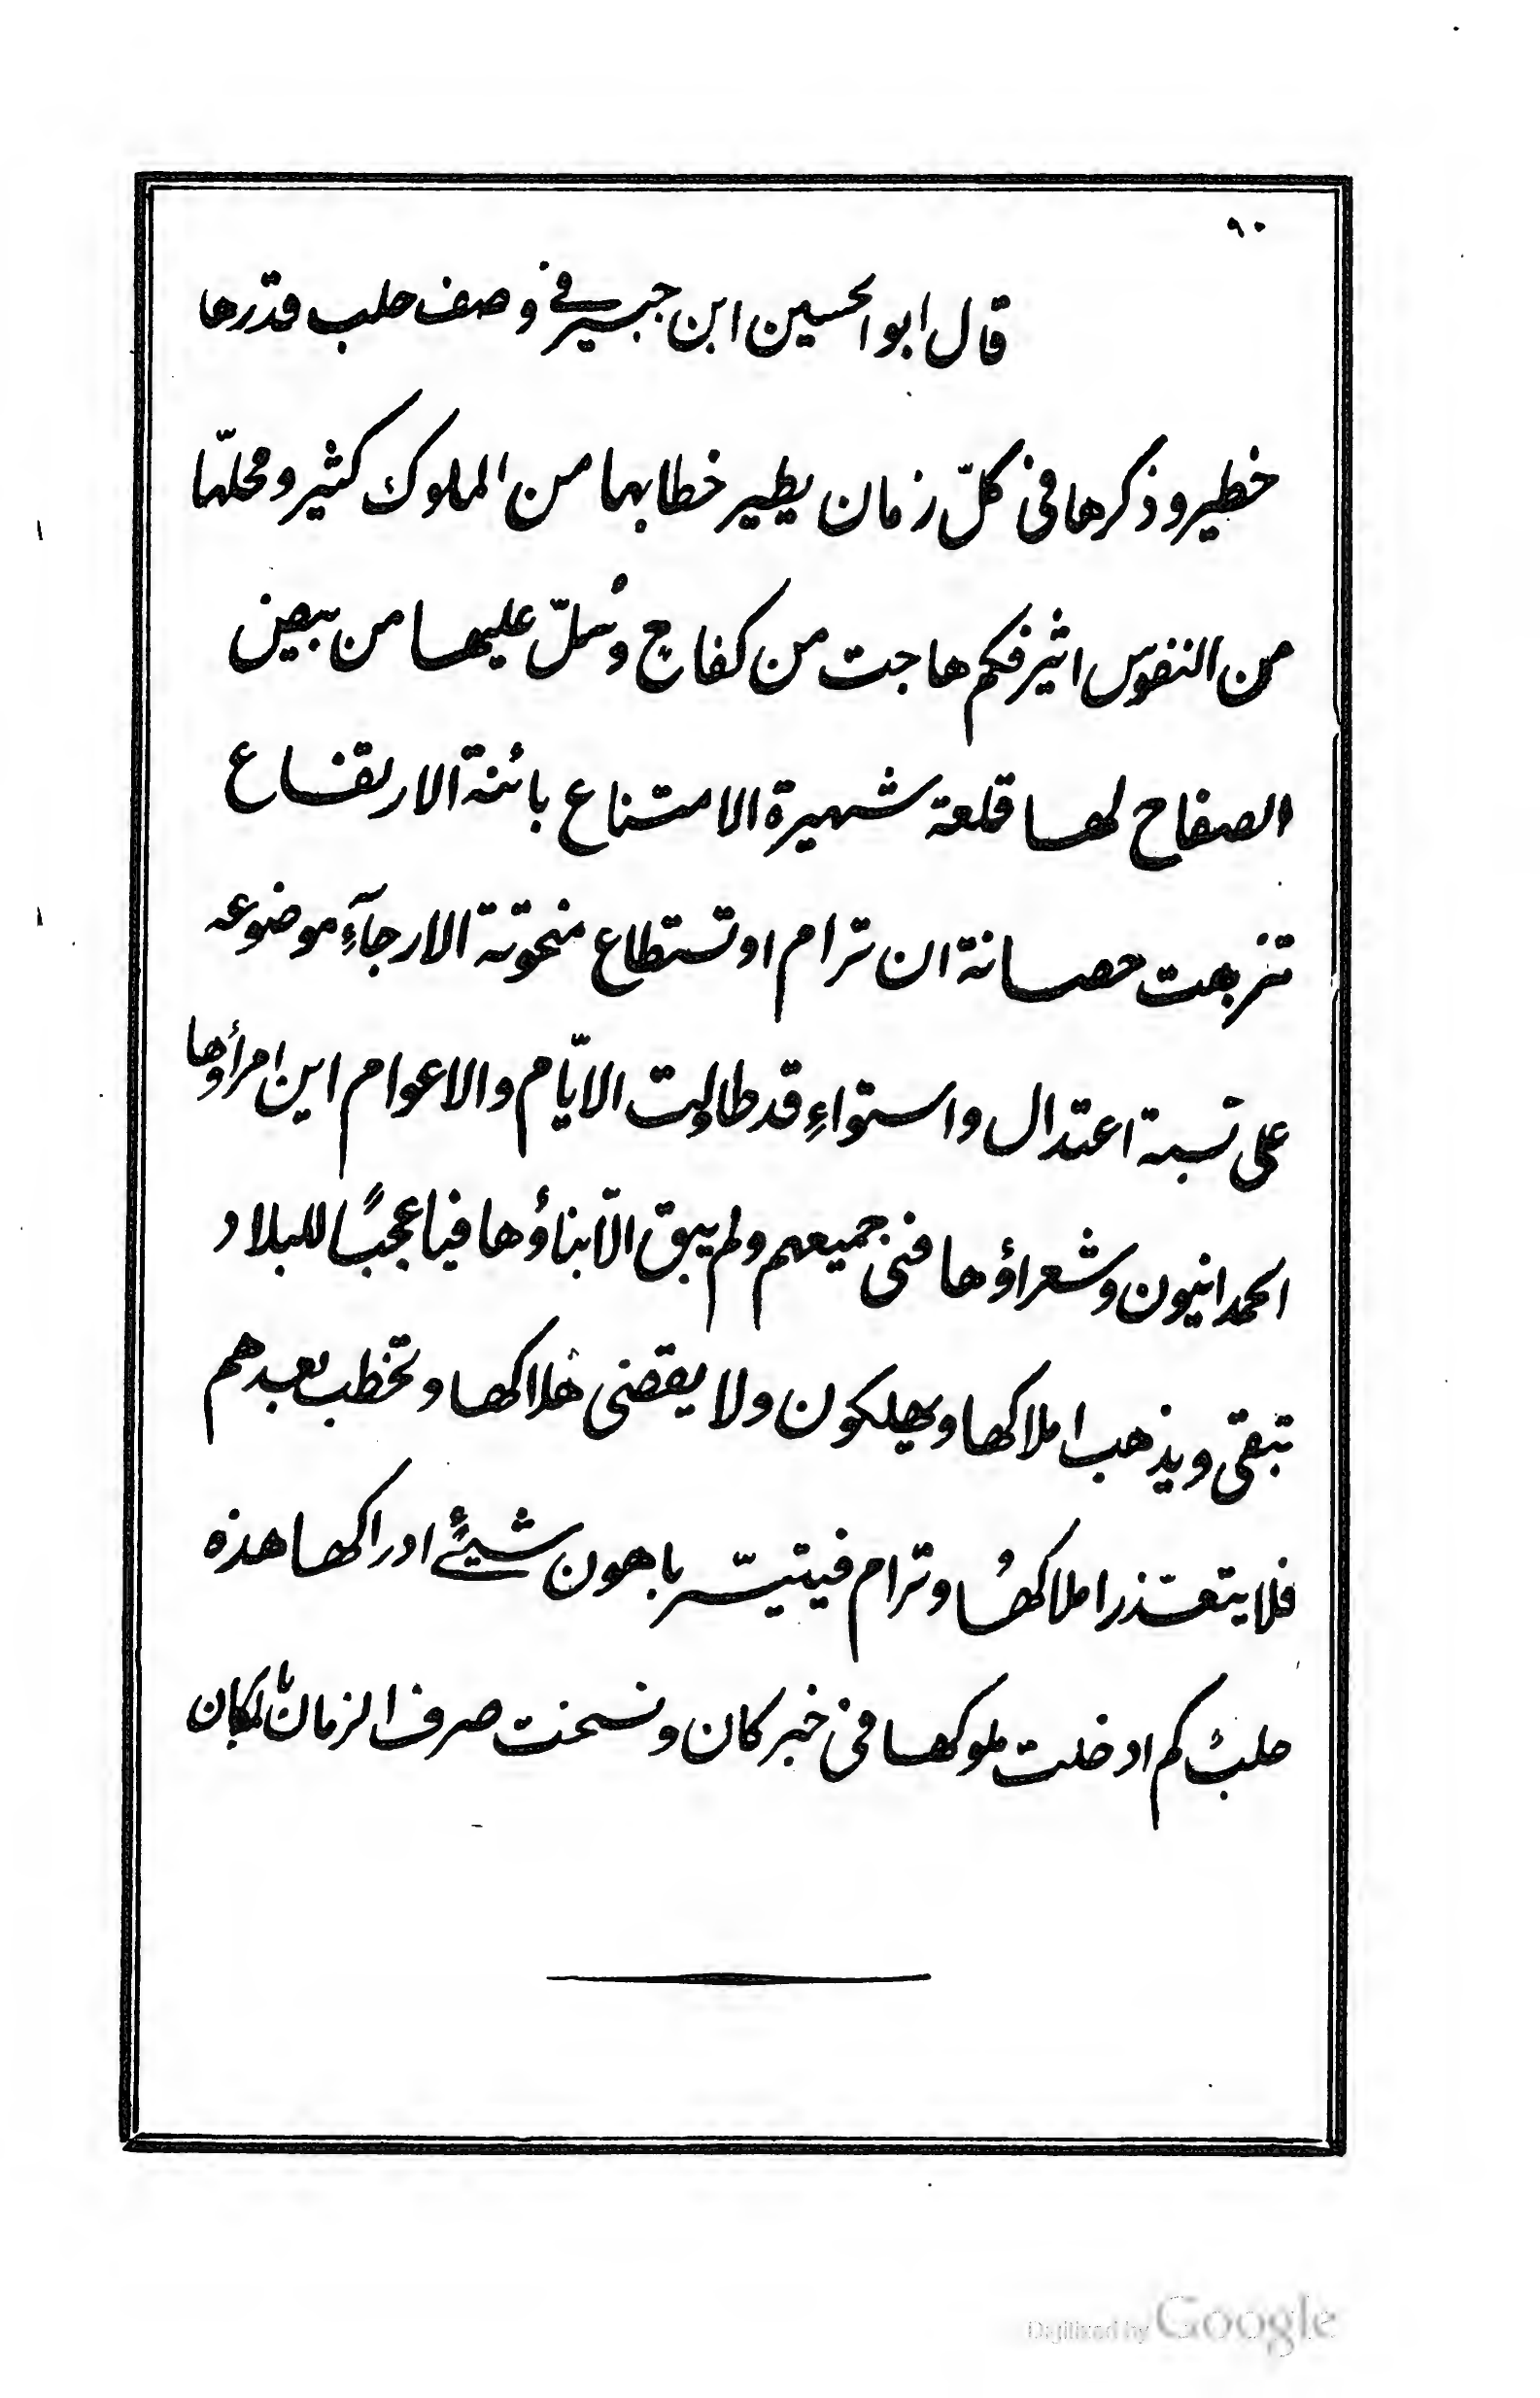 ٩٠
قال ابو الحسين ابن جبير في وصف حلب قدرها
خطير وذكرها في كلّ زمان يطير خطابها من الملوك كثير ومحلّها
من النفوس اثير فكم هاجت من كفاح وسُلّ عليها من بيض
الصفاح لها قلعة شهيرة الامتناع بائنة الارتفاع
تنزهت حصانة ان ترام او تستطاع منحوتة الارجآءِ موضوعه
على نسبة اعتدال واستواءِ قد طاولت الايّام والاعوام اين امرأوها
الحمدانيون وشعراؤها فنى جميعهم ولم يبق الّا بناؤها فيا عجبًا للبلاد
تبقى ويذهب املاكها ويهلكون ولا يقضى هلاكها وتخطب بعدهم
فلا يتعذّر املاكها وترام فيتيسّر باهون شيئٍ ادراكها هذه
حلب كم ادخلت ملوكها في خبر كان ونسخت صرف الزمان بالمكان
Digitized by Google